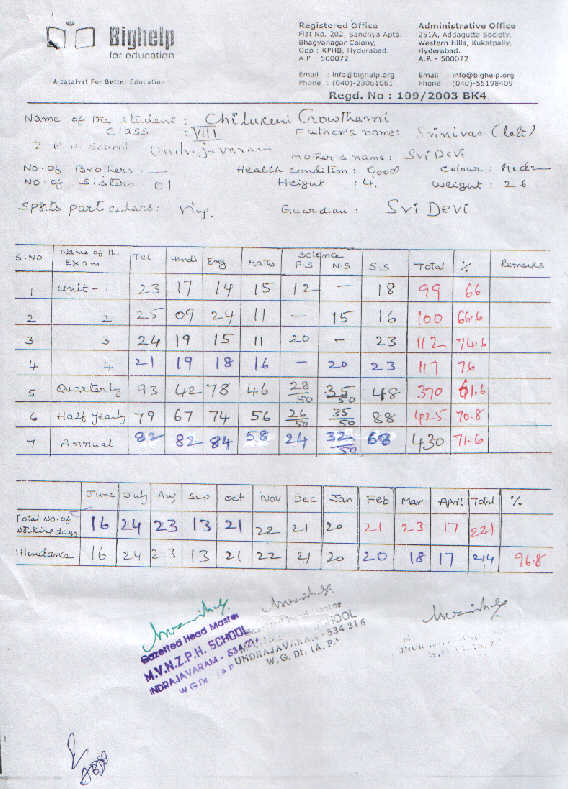 Bighelp
for education
A Catalyst For Better Education
Registered Office
Flat No. 202, Sandhya Apts.
Bhagyanagar Colony,
Opp : KPHB, Hyderabad.
A.P - 500072
Email : info@bighelp.org
Phone : (040)-23061061
Administrative Office
251A, Addagutta Society,
Western Hills, Kukatpally,
Hyderabad.
A.P. - 500072
Email : info@bighelp.org
Phone : (040)-55198409
Regd. No : 109/2003 BK4
Name of the student : Chilukuri Gowthami
Class : VIII Father's name: Srinivas (late)
School Undrajavaram Mother's name: Sri Devi
No. of Brothers : — Health condition : Good Colour :
No. of Sisters : 01 Height : 4. Weight : 26
Sports particulars: Guardian : Sri Devi
S.NO Name of the Exam Tel Hindi Eng Maths Science P.S N.S S.S Total % Remarks
1 Unit - 1 23 17 14 15 12 - 18 99 66
2 2 25 09 24 11 - 15 16 100 66.6
3 3 24 19 15 11 20 - 23 112 74.6
4 4 21 19 18 16 - 20 23 117 76
5 Quarterly 93 42 78 46 28/50 35/50 48 370 61.6
6 Half Yearly 79 67 74 56 26/50 35/50 88 425 70.8
7 Annual 82 82 84 58 24 32/50 68 430 71.6
June July Aug Sep Oct Nov Dec Jan Feb Mar April Total %
Total No. of Working days 16 24 23 13 21 22 21 20 21 23 17 221
Attendance 16 24 23 13 21 22 21 20 20 18 17 214 96.8
Gazetted Head Master
M.V.N.Z.P.H. SCHOOL
UNDRAJAVARAM - 534216
W.G. Dt. (A.P.)